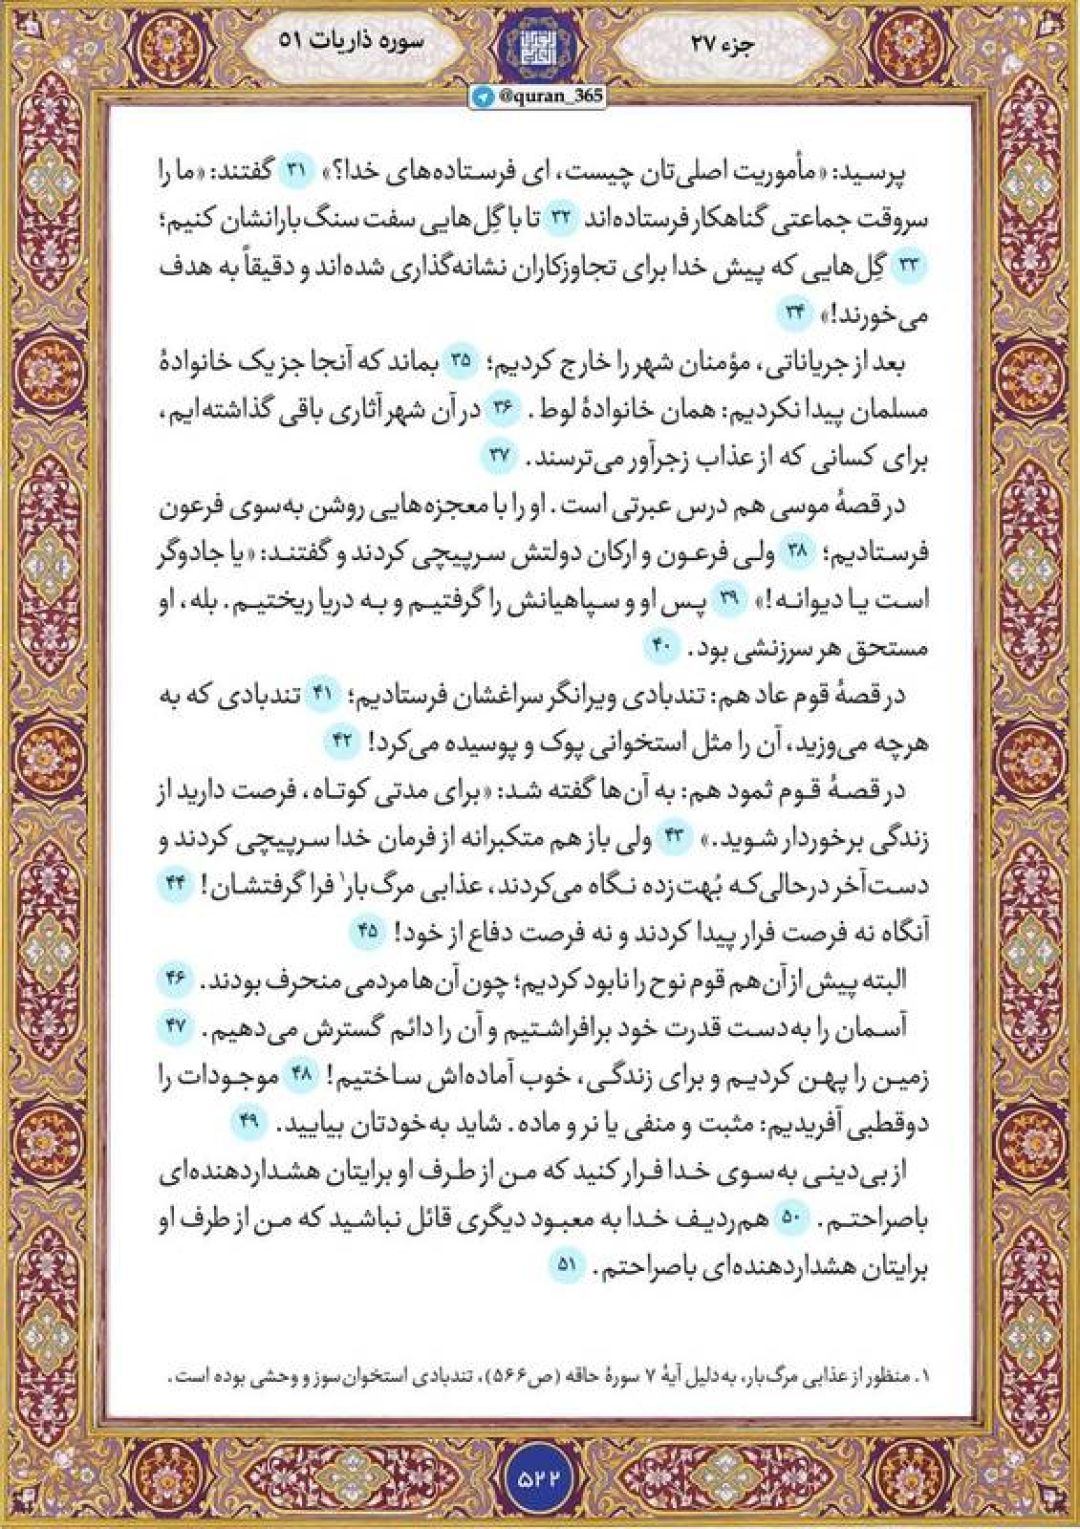 جزء ۲۷
سوره ذاریات ۵۱
@quran_365
پرسید: «مأموریت اصلی‌تان چیست، ای فرستاده‌های خدا؟» ۳۱ گفتند: «ما را
سروقت جماعتی گناهکار فرستاده‌اند ۳۲ تا با گِل‌هایی سفت سنگ‌بارانشان کنیم؛
۳۳ گِل‌هایی که پیش خدا برای تجاوزکاران نشانه‌گذاری شده‌اند و دقیقاً به هدف
می‌خورند!» ۳۴
بعد از جریاناتی، مؤمنان شهر را خارج کردیم؛ ۳۵ بماند که آنجا جز یک خانوادهٔ
مسلمان پیدا نکردیم: همان خانوادهٔ لوط. ۳۶ در آن شهر آثاری باقی گذاشته‌ایم،
برای کسانی که از عذاب زجرآور می‌ترسند. ۳۷
در قصهٔ موسی هم درس عبرتی است. او را با معجزه‌هایی روشن به‌سوی فرعون
فرستادیم؛ ۳۸ ولی فرعون و ارکان دولتش سرپیچی کردند و گفتند: «یا جادوگر
است یا دیوانه!» ۳۹ پس او و سپاهیانش را گرفتیم و به دریا ریختیم. بله، او
مستحق هر سرزنشی بود. ۴۰
در قصهٔ قوم عاد هم: تندبادی ویرانگر سراغشان فرستادیم؛ ۴۱ تندبادی که به
هرچه می‌وزید، آن را مثل استخوانی پوک و پوسیده می‌کرد! ۴۲
در قصهٔ قوم ثمود هم: به آن‌ها گفته شد: «برای مدتی کوتاه، فرصت دارید از
زندگی برخوردار شوید.» ۴۳ ولی باز هم متکبرانه از فرمان خدا سرپیچی کردند و
دست‌آخر درحالی‌که بُهت‌زده نگاه می‌کردند، عذابی مرگ‌بار۱ فرا گرفتشان! ۴۴
آنگاه نه فرصت فرار پیدا کردند و نه فرصت دفاع از خود! ۴۵
البته پیش از آن هم قوم نوح را نابود کردیم؛ چون آن‌ها مردمی منحرف بودند. ۴۶
آسمان را به‌دست قدرت خود برافراشتیم و آن را دائم گسترش می‌دهیم. ۴۷
زمین را پهن کردیم و برای زندگی، خوب آماده‌اش ساختیم! ۴۸ موجودات را
دوقطبی آفریدیم: مثبت و منفی یا نر و ماده. شاید به خودتان بیایید. ۴۹
از بی‌دینی به‌سوی خدا فرار کنید که من از طرف او برایتان هشداردهنده‌ای
باصراحتم. ۵۰ هم‌ردیف خدا به معبود دیگری قائل نباشید که من از طرف او
برایتان هشداردهنده‌ای باصراحتم. ۵۱
۱. منظور از عذابی مرگ‌بار، به‌دلیل آیهٔ ۷ سورهٔ حاقه (ص۵۶۶)، تندبادی استخوان‌سوز و وحشی بوده است.
۵۲۲